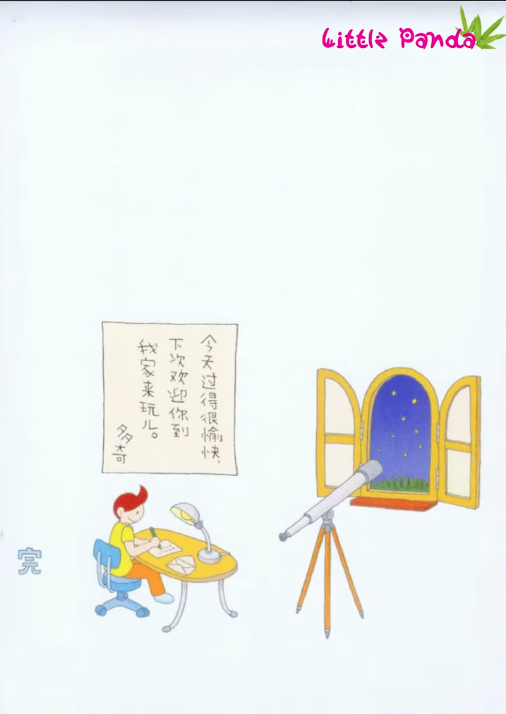 Little Panda
今天过得很愉快，
下次欢迎你到
我家来玩儿。
多奇
完